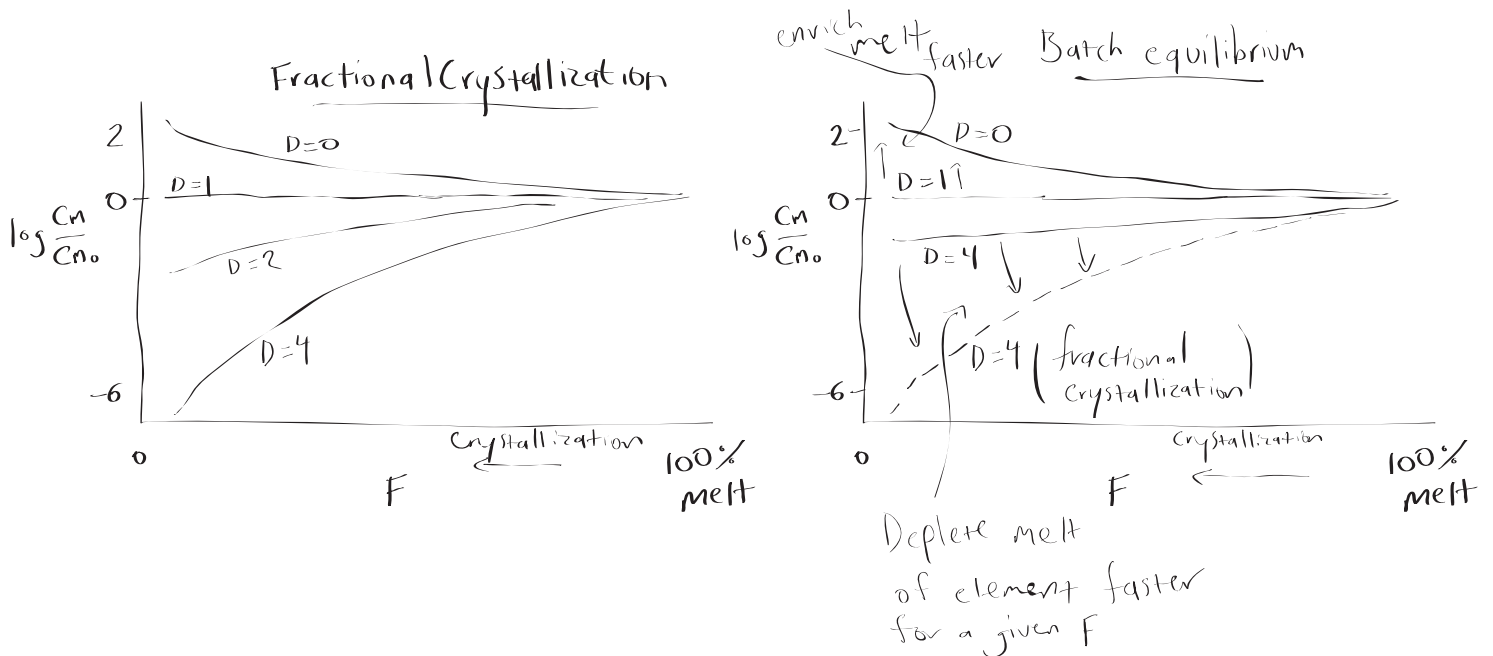 Fractional Crystallization
2
D=0
D=1
0
log Cm/Cm₀
D=2
D=4
-6
crystallization
0
100%
F
melt
enrich
melt
faster
Batch equilibrium
2
D=0
D=1
0
log Cm/Cm₀
D=4
D=4 (fractional
crystallization)
-6
crystallization
0
100%
F
melt
Deplete melt
of element faster
for a given F